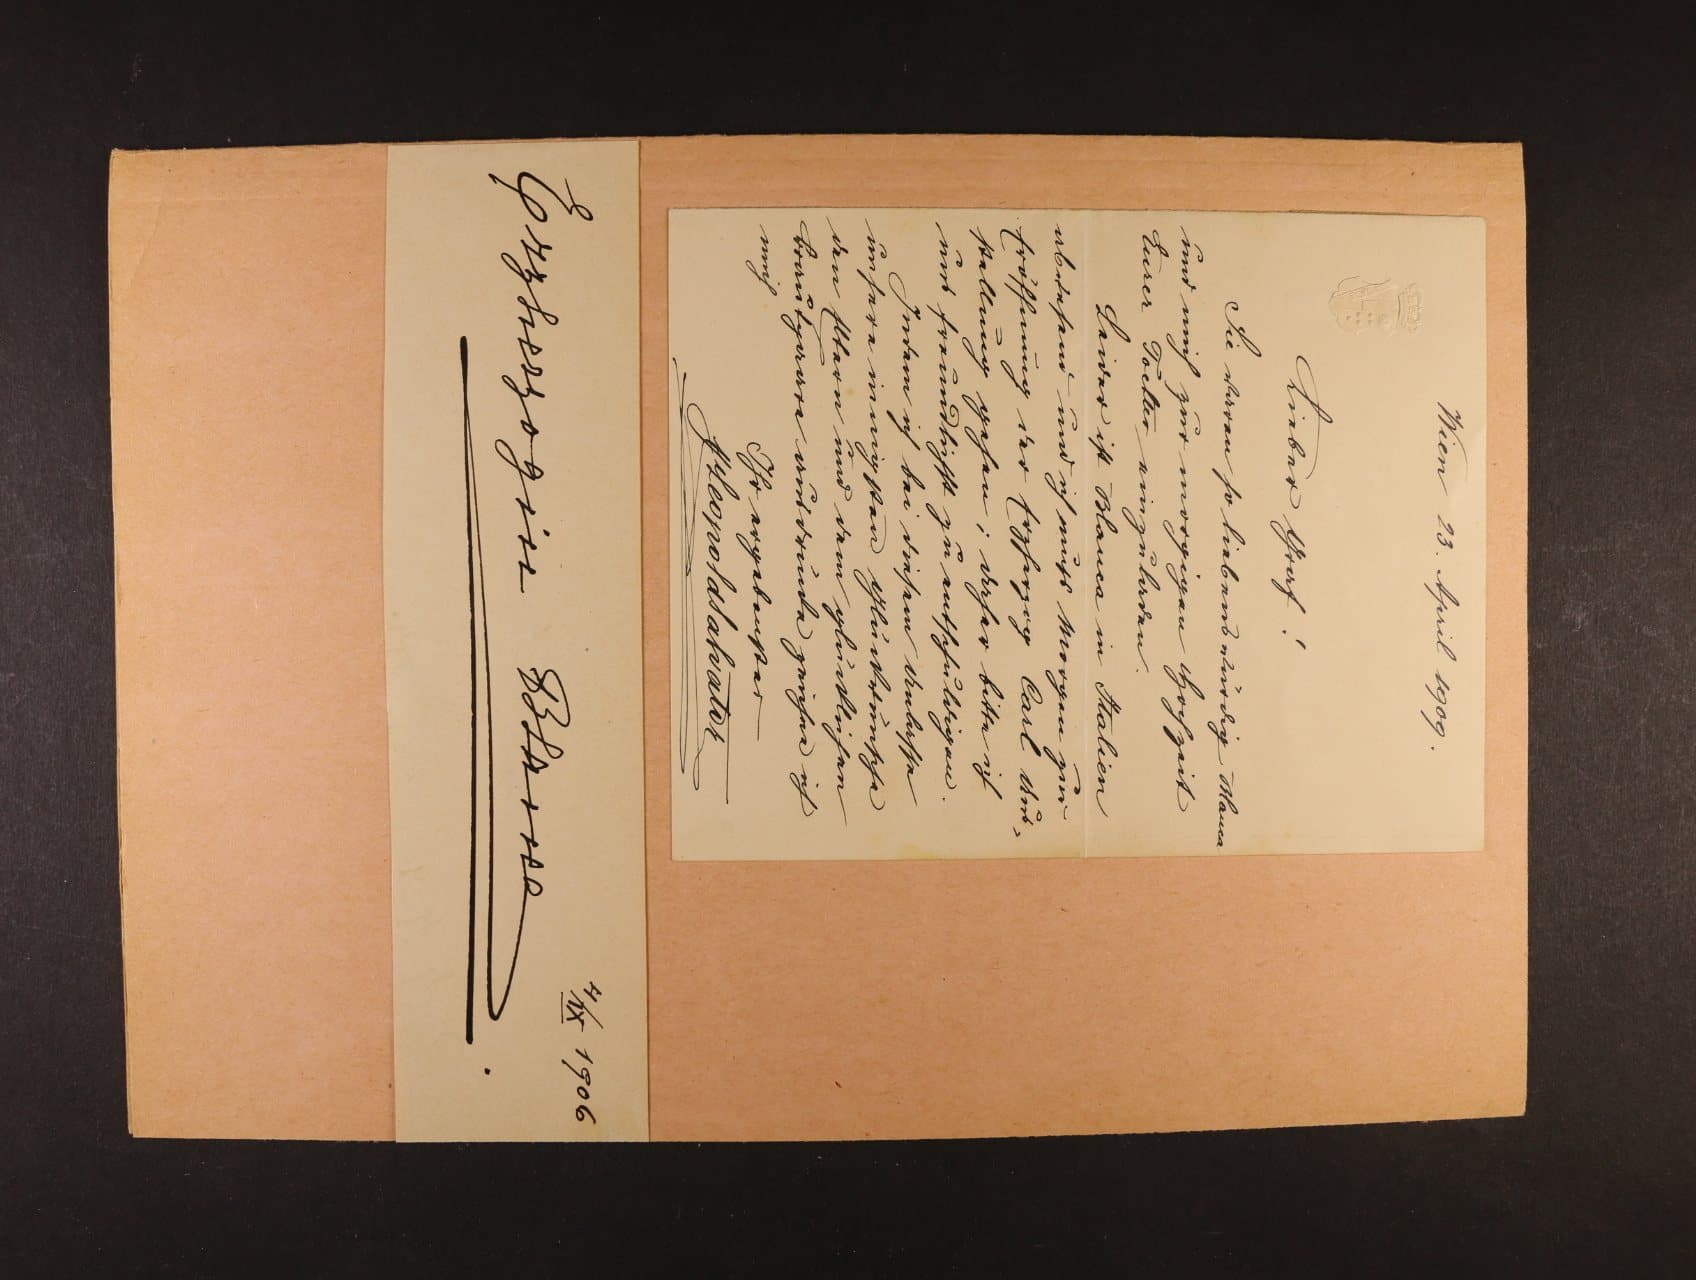 Wien 23. April 1909.
Lieber Graf!
Sie waren so liebenswürdig Blanca
und mich zur morgigen Hochzeit
Eurer Tochter einzuladen.
Leider ist Blanca in Italien
abwesend und ich muß Morgen zur
Eröffnung der Erzherzog Carl Aus-
stellung gehen; daher bitte ich
uns freundlichst zu entschuldigen.
Indem ich bei diesem Anlasse
unsere innigsten Glückwünsche
den Eltern und dem glücklichen
Brautpaare ausdrücke zeichne ich
mich
Ihr ergebenster
Leopold Salvator
Erzherzogin Blanca
4/IX 1906